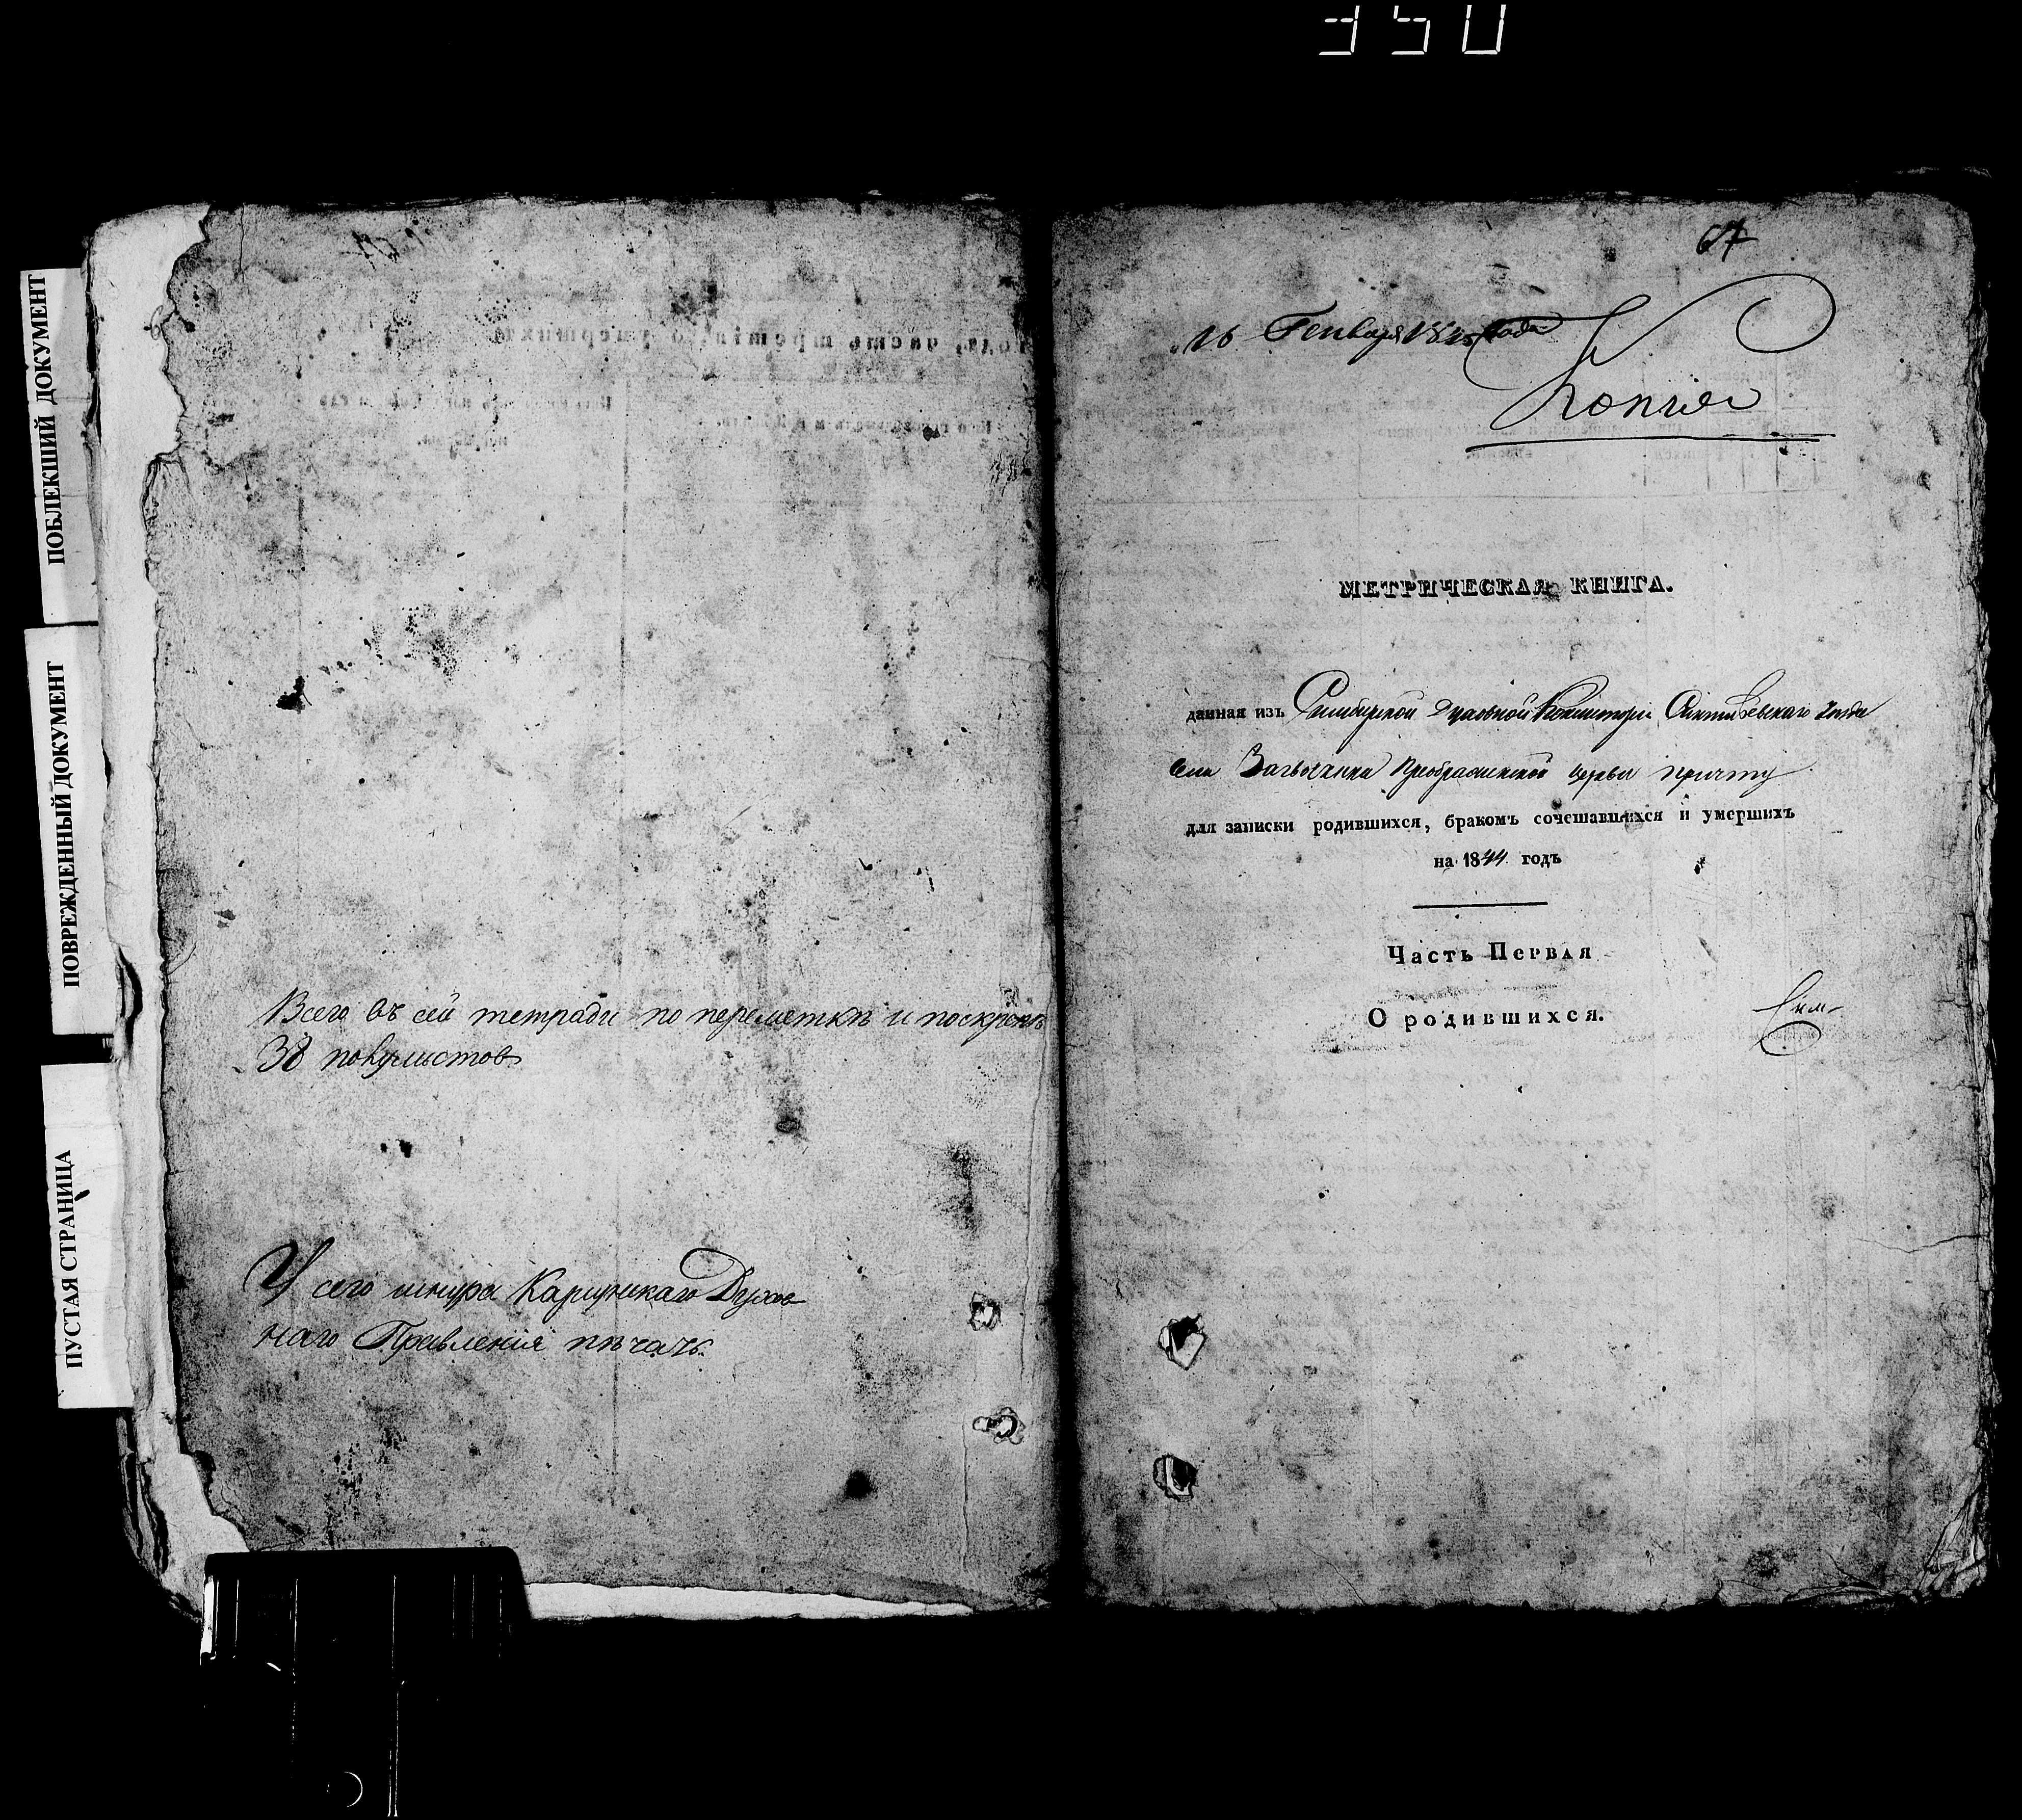 350
ПОБЛЕКШИЙ ДОКУМЕНТ
ПОВРЕЖДЕННЫЙ ДОКУМЕНТ
ПУСТАЯ СТРАНИЦА
Всего въ сей тетради по переметкѣ и поскрепѣ
38 полулистов
У сего шнура Карсунскаго Духов
наго Правленія печать.
67
16 Генваря 1845 года
Копия
МЕТРИЧЕСКАЯ КНИГА.
данная изъ Симбирской Духовной Консисторіи Сенгилеевскаго Уезда
села Преображенской церкви причту
для записки родившихся, бракомъ сочетавшихся и умершихъ
на 1844 годъ
Часть Первая
О родившихся.